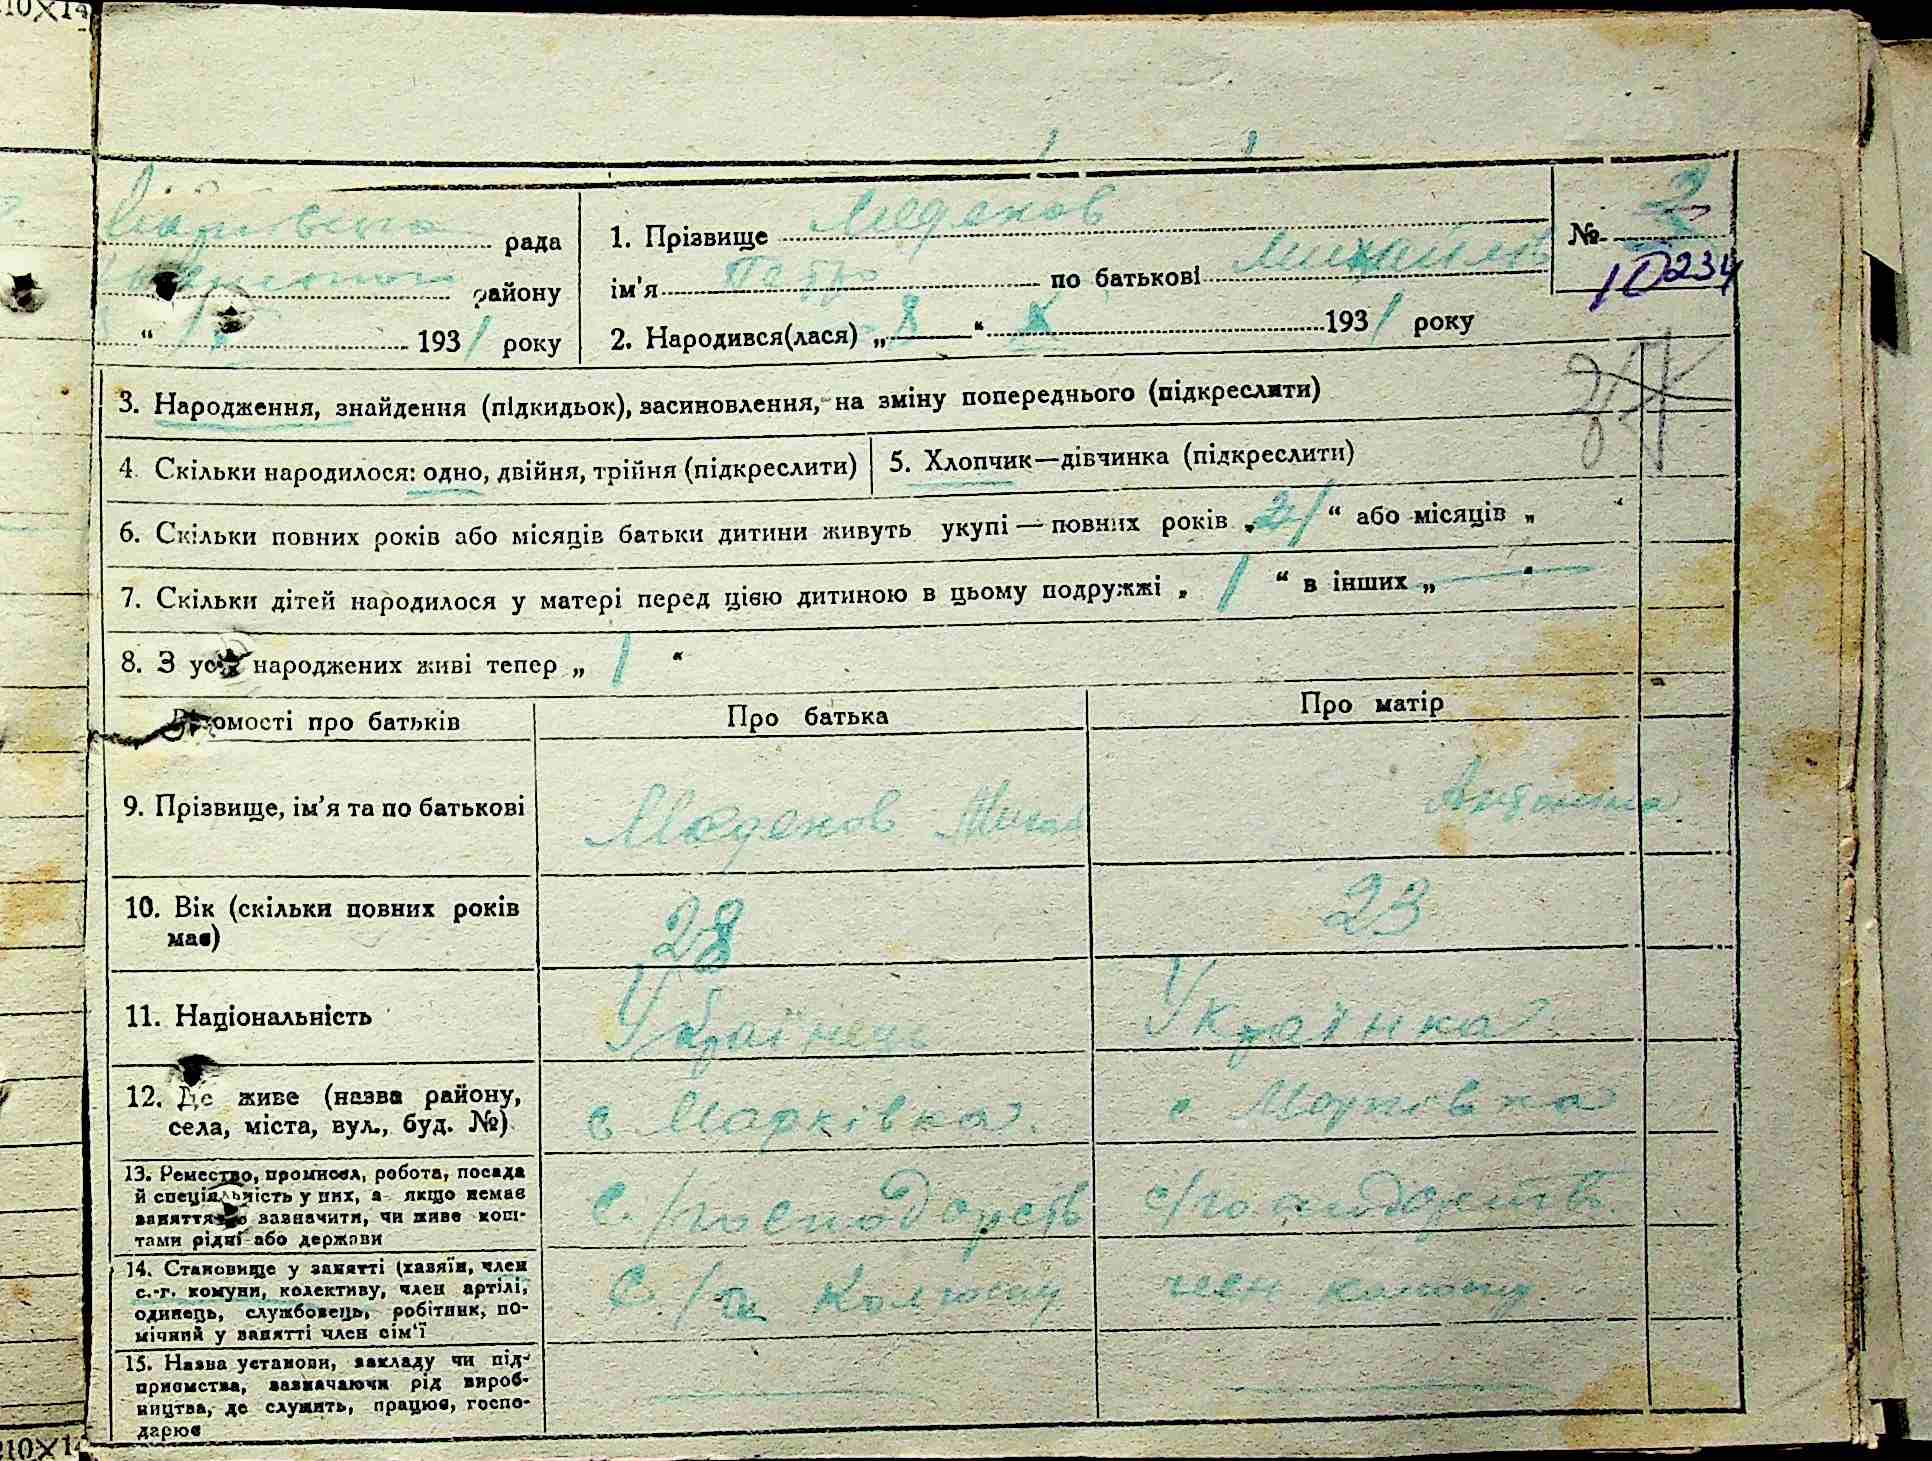 210×14
рада
району
“ 1931 року
1. Прізвище Меденов
ім'я Петро по батькові Михайлов
2. Народився(лася) „ 8 “ X 1931 року
№ 2
10234
3. Народження, знайдення (підкидьок), засиновлення, на зміну попереднього (підкреслити)
4. Скільки народилося: одно, двійня, трійня (підкреслити)
5. Хлопчик—дівчинка (підкреслити)
6. Скільки повних років або місяців батьки дитини живуть укупі — повних років „ “ або місяців „ “
7. Скільки дітей народилося у матері перед цією дитиною в цьому подружжі „ 1 “ в інших „ — “
8. З усіх народжених живі тепер „ 1 “
Відомості про батьків
Про батька
Про матір
9. Прізвище, ім'я та по батькові
Меденов Михай
Антонина
10. Вік (скільки повних років
має)
28
23
11. Національність
Українець
Українка
12. Де живе (назва району,
села, міста, вул., буд. №)
с Марківка
с Марківка
13. Ремество, промисел, робота, посада
й спеціяльність у них, а якщо немає
заняття, то зазначити, чи живе кош-
тами рідні або держави
С./господарств
с/господарств
14. Становище у занятті (хазяїн, член
с.-г. комуни, колективу, член артілі,
одинець, службовець, робітник, по-
мічний у занятті член сім'ї
член колгоспу
15. Назва установи, закладу чи під-
приємства, зазначаючи рід вироб-
ництва, де служить, працює, госпо-
дарює
210×14